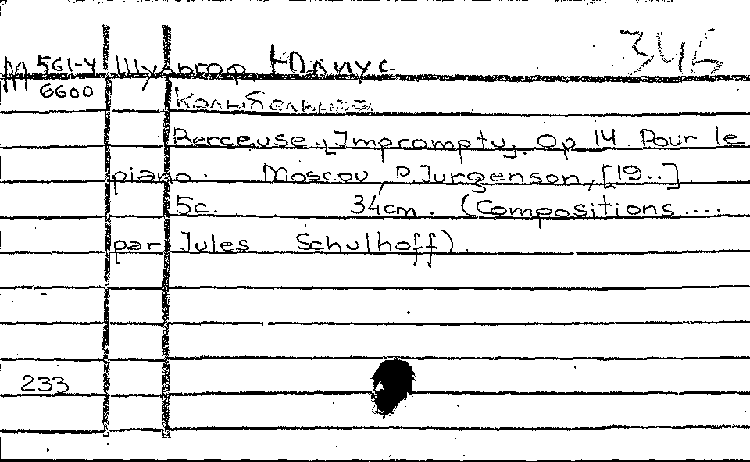 М 561-4 Шульгоф, Юлиус 346
6600
Колыбельная
Berceuse, Impromptu, Op 14 Pour le
piano. Moscou, P. Jurgenson, [19..]
5c. 34cm. (Compositions ....
par Jules Schulhoff).
233